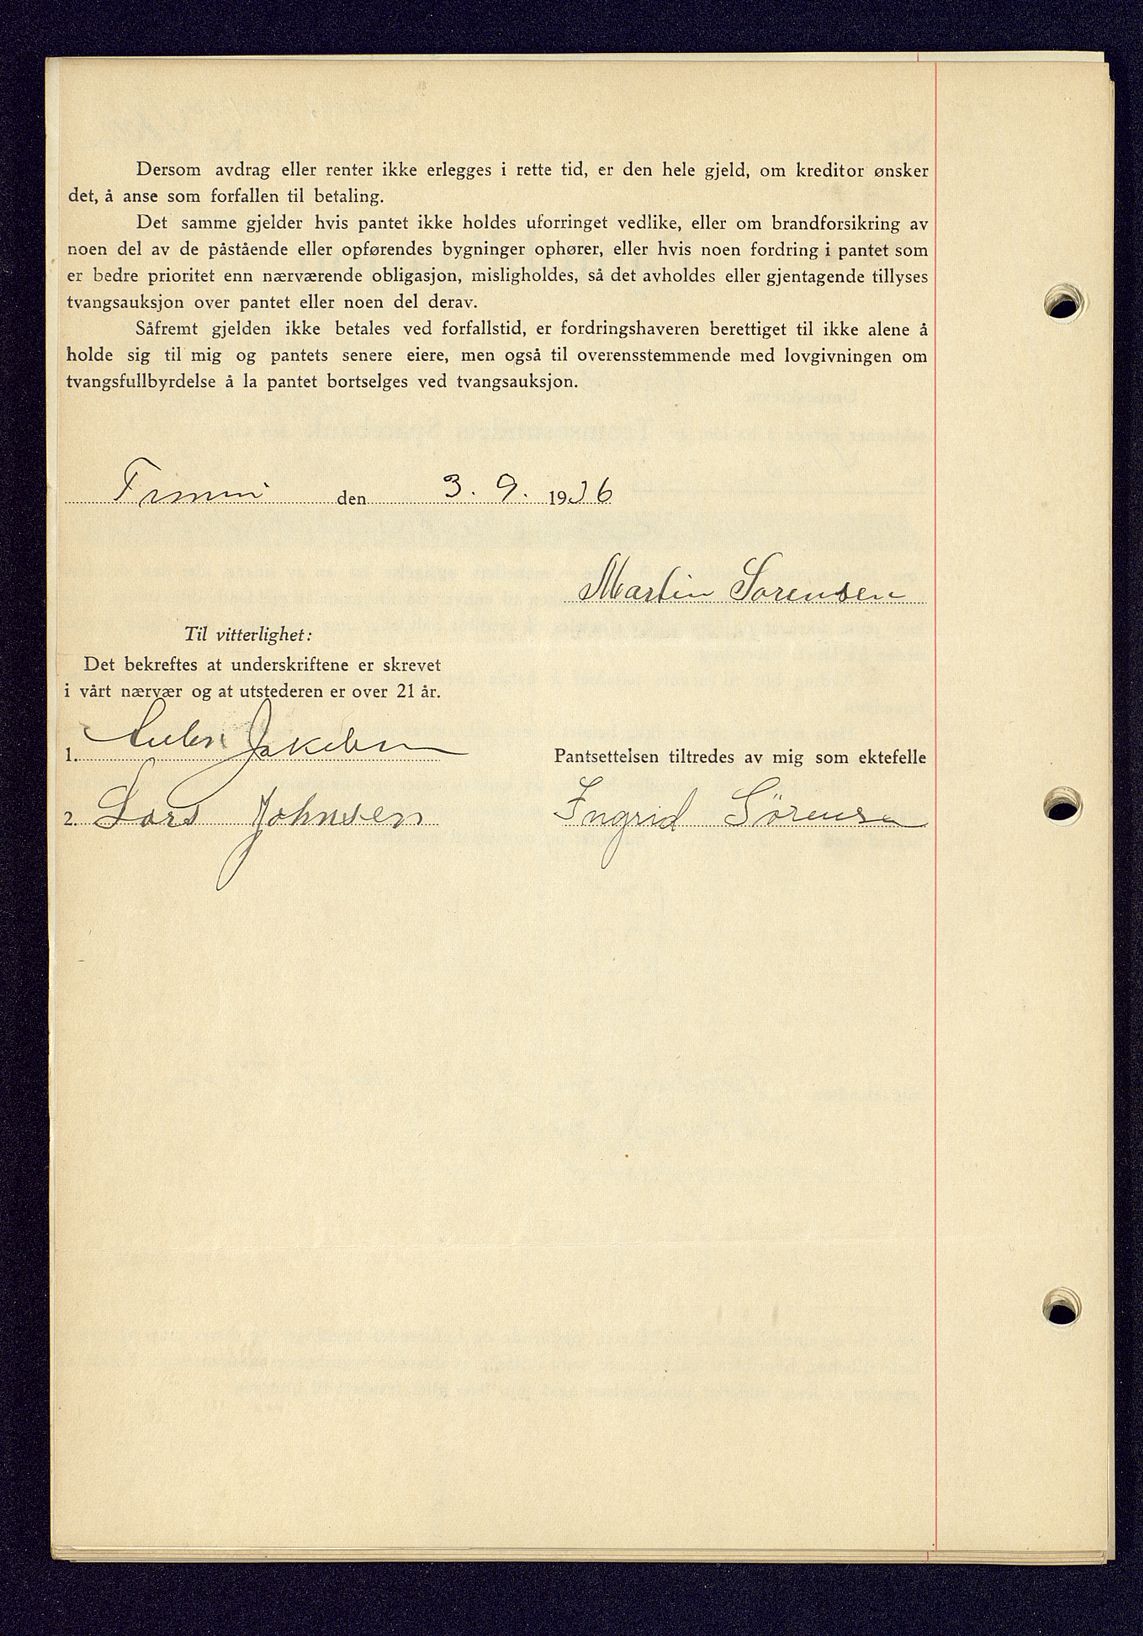 Dersom avdrag eller renter ikke erlegges i rette tid, er den hele gjeld, om kreditor ønsker
det, å anse som forfallen til betaling.
Det samme gjelder hvis pantet ikke holdes uforringet vedlike, eller om brandforsikring av
noen del av de påstående eller opførendes bygninger ophører, eller hvis noen fordring i pantet som
er bedre prioritet enn nærværende obligasjon, misligholdes, så det avholdes eller gjentagende tillyses
tvangsauksjon over pantet eller noen del derav.
Såfremt gjelden ikke betales ved forfallstid, er fordringshaveren berettiget til ikke alene å
holde sig til mig og pantets senere eiere, men også til overensstemmende med lovgivningen om
tvangsfullbyrdelse å la pantet bortselges ved tvangsauksjon.
den 3. 9. 1936
Martin Sørensen
Til vitterlighet:
Det bekreftes at underskriftene er skrevet
i vårt nærvær og at utstederen er over 21 år.
1. Jakobsen
Pantsettelsen tiltredes av mig som ektefelle
2. Lars Johnsen
Ingrid Sørensen